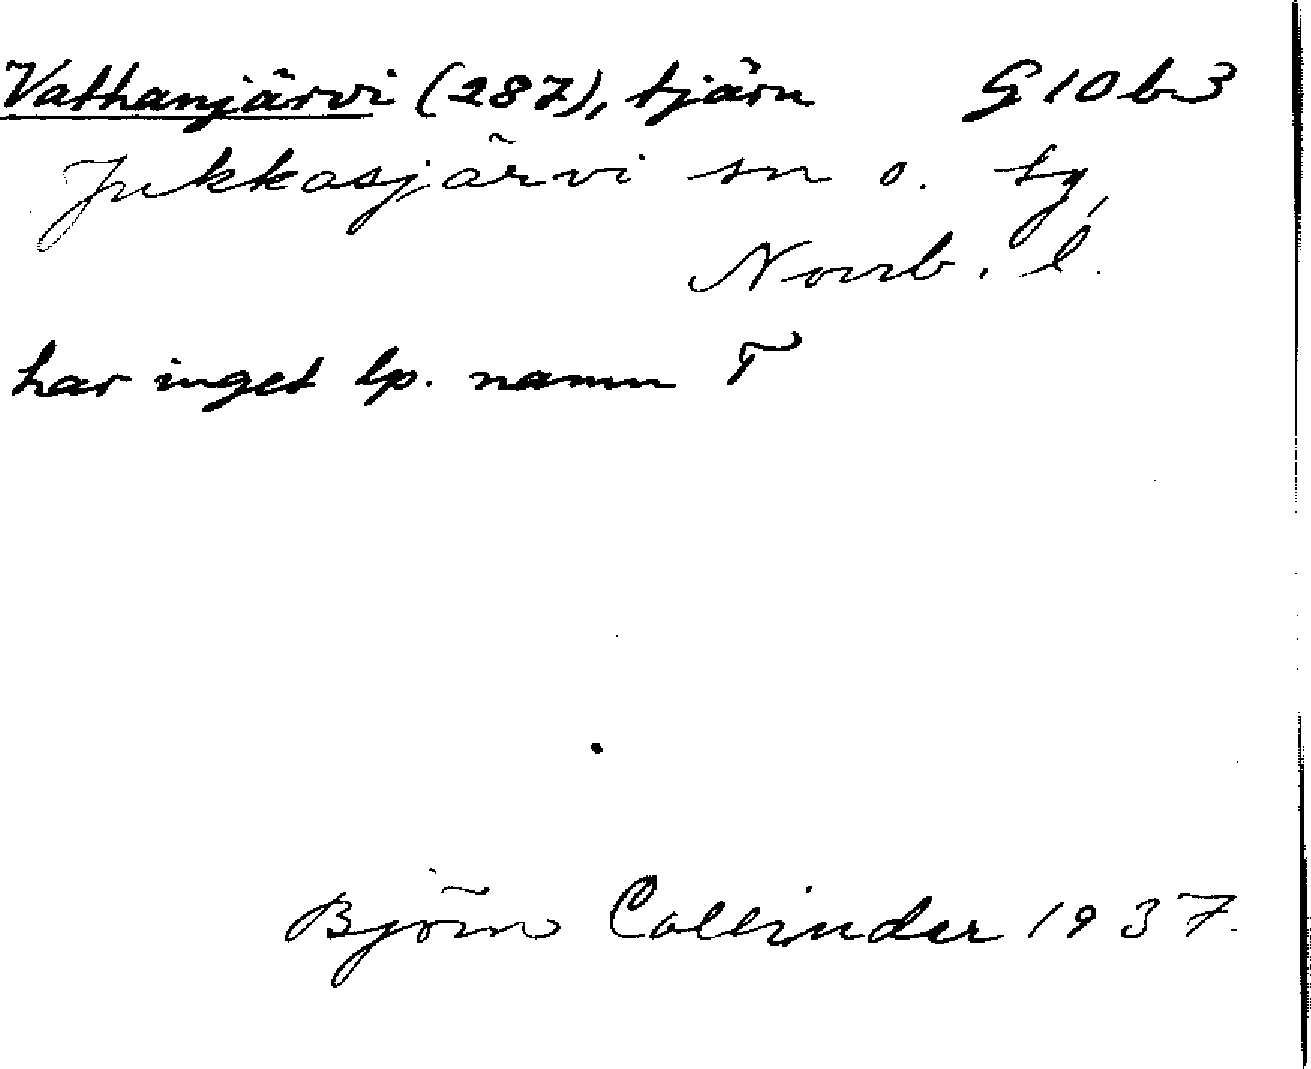 Vathanjärvi (287), tjärn G10b3
Jukkasjärvi sn o. tg,
Norrb. l.
har inget lp. namn T
Björn Collinder 1937.